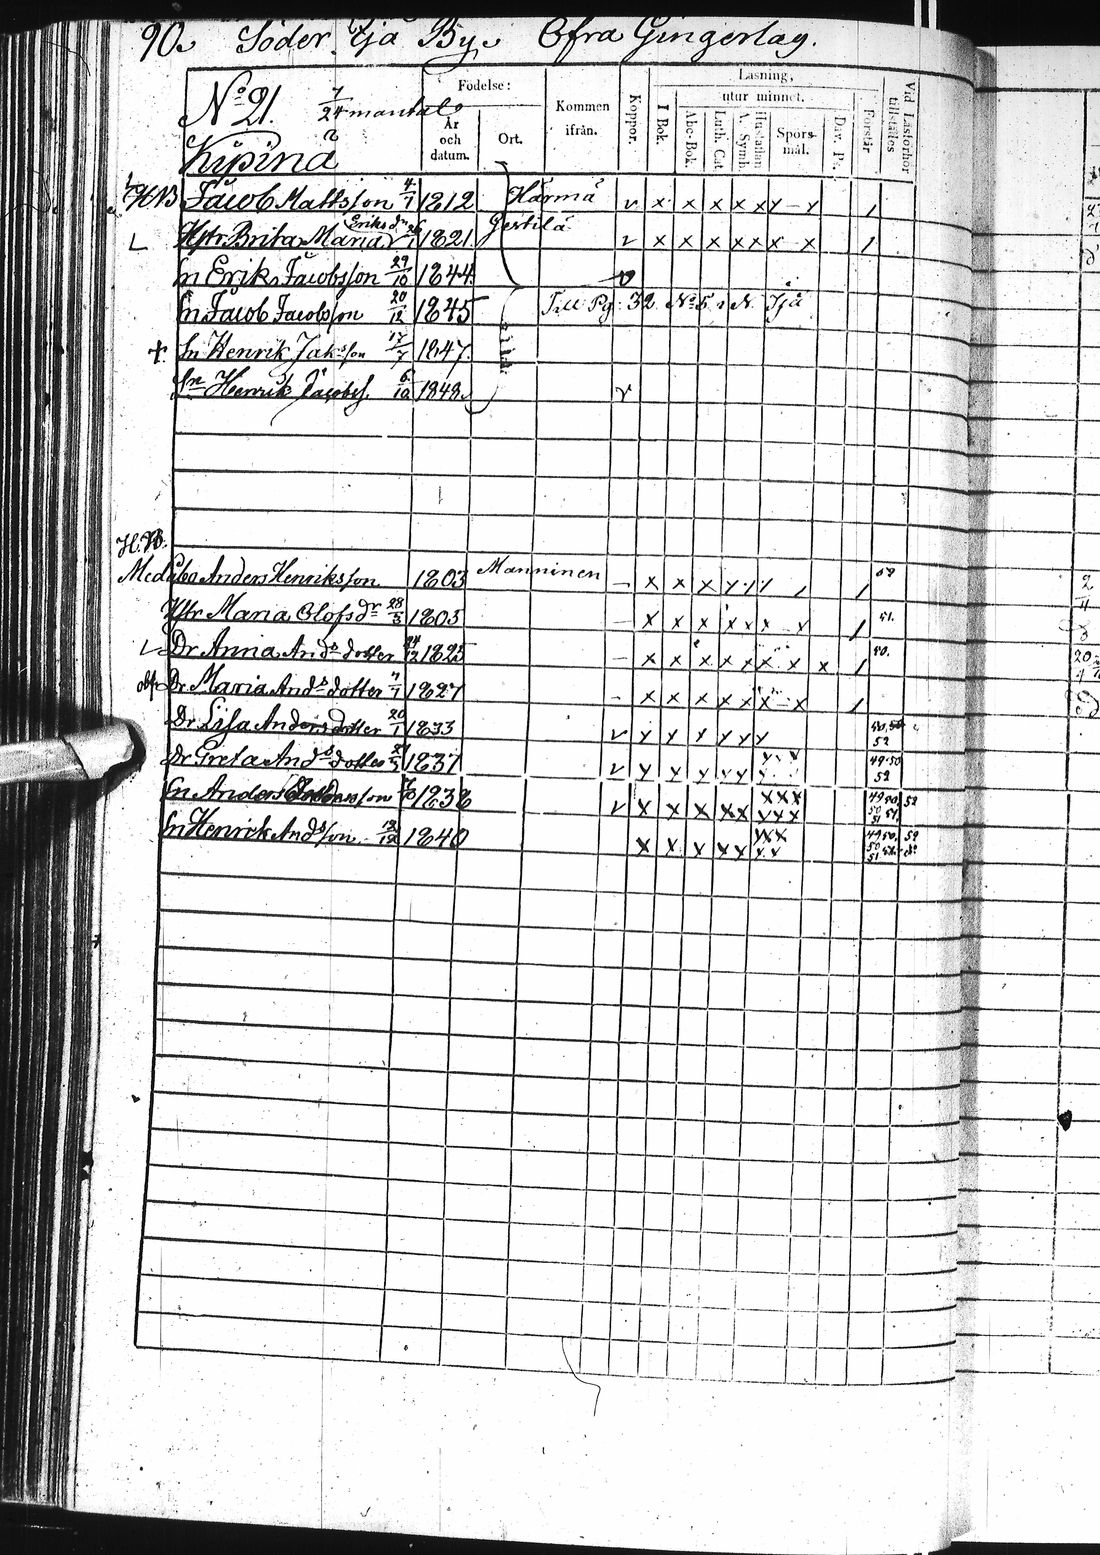 90. Söder Yjå By. Öfra Gingerlag.
Nº 21. 7/24 mantal
a
Kipinä
Födelse:
År och datum.
Ort.
Kommen ifrån.
Koppor.
Läsning,
I Bok.
utur minnet.
Abc-Bok.
Luth. Cat.
A. Symb.
Hustaflan
Spörs-mål.
Dav. Ps.
Förstår
Vid Läsförhör tillställes
HB Jacob Mattsson 4/1 1812 Härmä v x x x x x y - y /
L Hstr Brita Maria Eriksdr 26/1 1821 Yestilä v x x x x x x x /
Sn Erik Jacobsson 29/10 1844 v
Sn Jacob Jacobsson 20/12 1845 Till Pg: 32 Nº 5 i N. Yjå
+ Sn Henrik Jak:sson 17/7 1847.
Sn Henrik Jacobss. 6/10 1848. v
H.B.
Med åbo Anders Henriksson 1803 Manninen - x x x y /
Hstr Maria Olofsdr 28/3 1805 - x x x x x x x / 51.
Dr Anna Ands dotter 24/12 1825 - x x x x x x x x / 50.
Dr Maria Ands dotter 7/1 1827 - x x x x x x x /
Dr Lisa Andersdotter 20/1 1833 v y y y y y y 52
Dr Greta Ands dotter 1837 v y y y y y y 49.50 52
Sn Anders Andersson 1838 v x x x x x x x x 49 50, 52
50 51
Sn Henrik Ands son 1840 x x x x x x x x 49 50, 52
50
51